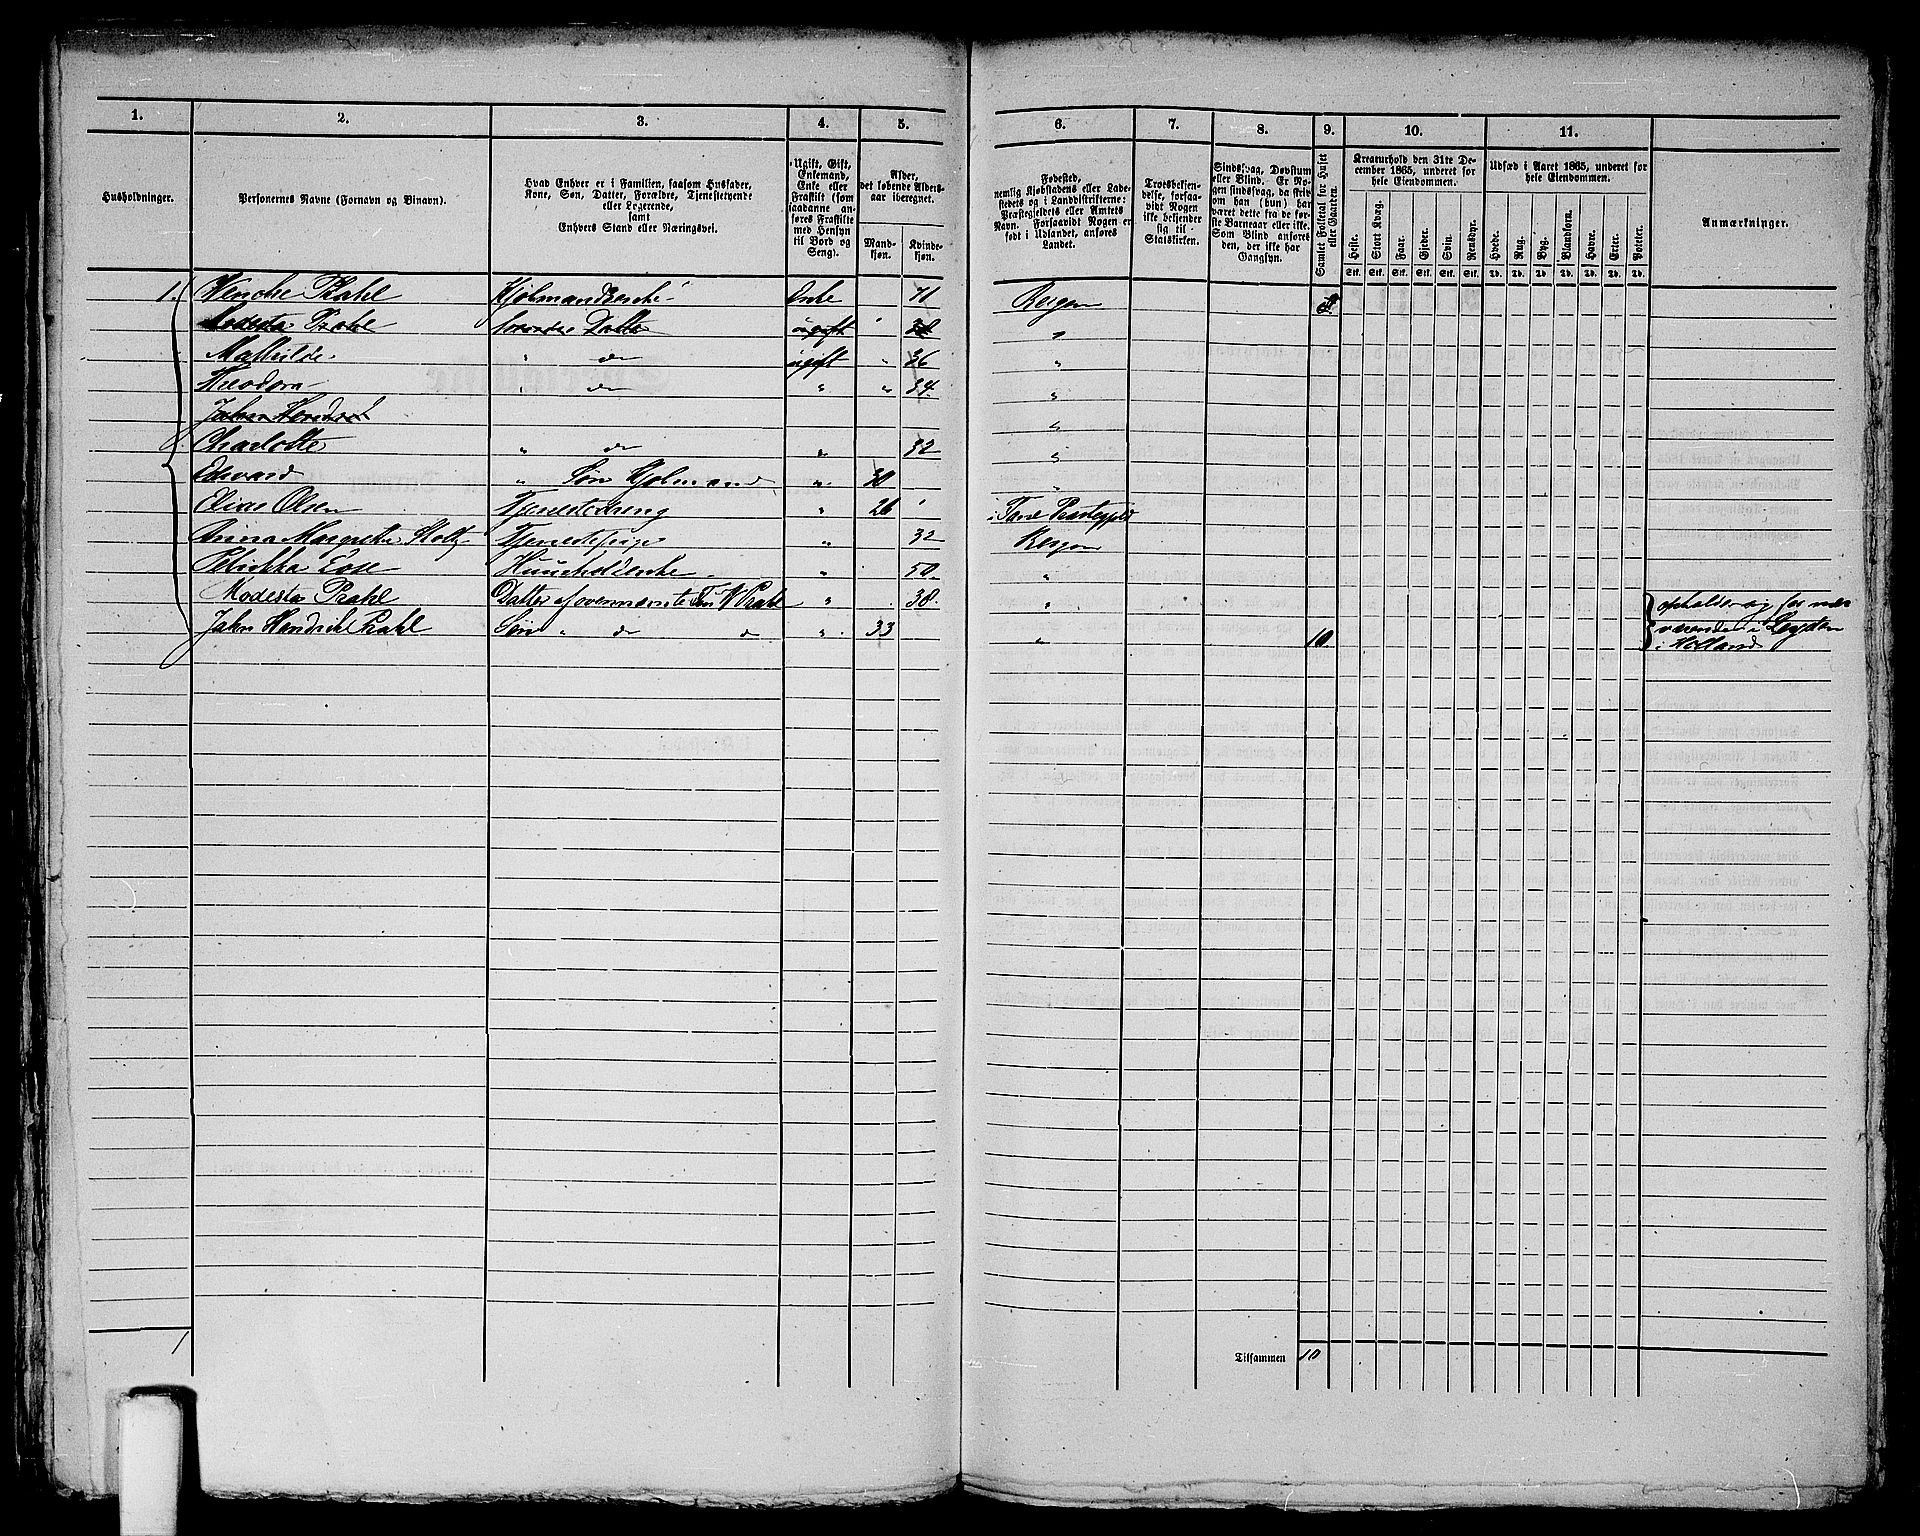 1. 2. 3. 4. 5. 6. 7. 8. 9. 10. 11.
Husholdninger.
Personernes Navne (Fornavn og Binavn).
Hvad Enhver er i Familien, saasom Husfader,
Kone, Søn, Datter, Forældre, Tjenestetyende
eller Logerende,
samt
Enhvers Stand eller Næringsvei.
Ugift, Gift,
Enkemand,
Enke eller
Fraskilt (som
saadanne an-
føres Fraskilte
med Hensyn
til Bord og
Seng).
Alder,
det løbende Alders-
aar iberegnet.
Mand-
kjøn.
Kvinde-
kjøn.
Fødested,
nemlig Kjøbstadens eller Lade-
stedets og i Landdistrikterne:
Præstegjeldets eller Amtets
Navn. Forsaavidt Nogen er
født i Udlandet, anføres
Landet.
Troesbekjen-
delse, forsaa-
vidt Nogen
ikke bekjender
sig til
Statskirken.
Sindssvag, Døvstum
eller Blind. Er No-
gen sindssvag, da skriv
om han (hun) har
været dette fra de før-
ste Barneaar eller ikke.
Som Blind anføres
den, der ikke har
Gangsyn.
Samlet Folketal for Huset
eller Gaarden.
Kreaturhold den 31te De-
cember 1865, underet for
hele Eiendommen.
Heste. Stort Kvæg. Faar. Gjeder. Svin. Rensdyr.
Stk. Stk. Stk. Stk. Stk. Stk.
Udsæd i Aaret 1865, underet for
hele Eiendommen.
Hvede. Rug. Byg. Blandkorn. Havre. Erter. Poteter.
Td. Td. Td. Td. Td. Td. Td.
Anmærkninger.
1. Wenche Prahl Kjøbmandsenke Enke 71 Bergen
Modesta Prahl Datter ugift 38 "
Mathilde " do ugift " 36 "
Theodora " do " " 34. "
Jahn Hendrik "
Charlotte " do " 32 "
Edvard " Søn Kjøbmand " 30 "
Elias Olsen Tjenestedreng " 26 " i Fane Præstegjeld
Anna Margrethe Stoltz Tjenestepige " 32 Bergen
Huusholderske " 50 "
Modesta Prahl Datter af ovennævnte W Prahl " 38. " opholder sig for nær
Jahn Hendrik Prahl Søn " do do " 33 " 10. værende i Leyden
i Holland
1
Tilsammen 10